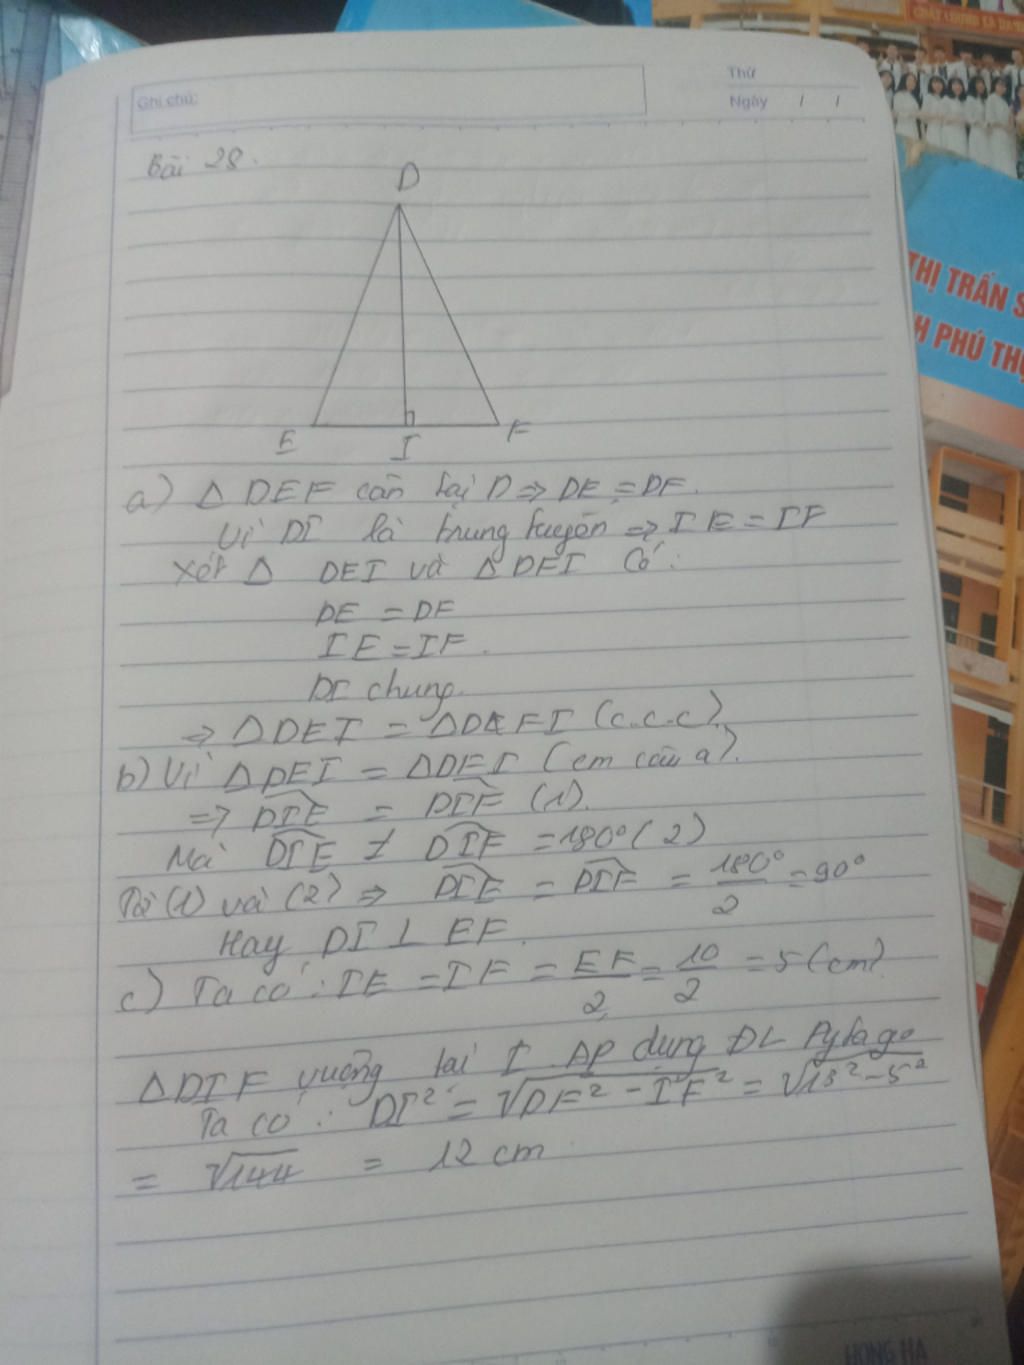 Ghi chú:
Thứ
Ngày / /
CHẤT LƯỢNG LÀ
THỊ TRẤN S
H PHÚ THỌ
Bài 28.
D
E
I
F
a) Δ DEF cân tại D ⇒ DE = DF.
Vì DI là trung tuyến ⇒ IE = IF
Xét Δ DEI và Δ DFI Có:
DE = DF
IE = IF.
DI chung.
⇒ ΔDEI = ΔDFI (c.c.c)
b) Vì ΔDEI = ΔDFI (cm câu a).
⇒ DIE = DIF (1).
Mà DIE + DIF = 180° (2)
Từ (1) và (2) ⇒ DIE = DIF = 180°/2 = 90°
Hay DI ⊥ EF.
c) Ta có: IE = IF = EF/2 = 10/2 = 5 (cm)
ΔDIF vuông tại I. Áp dụng ĐL Pytago
Ta có: DI² = √DF² - IF² = √13² - 5²
= √144 = 12 cm
HONG HA